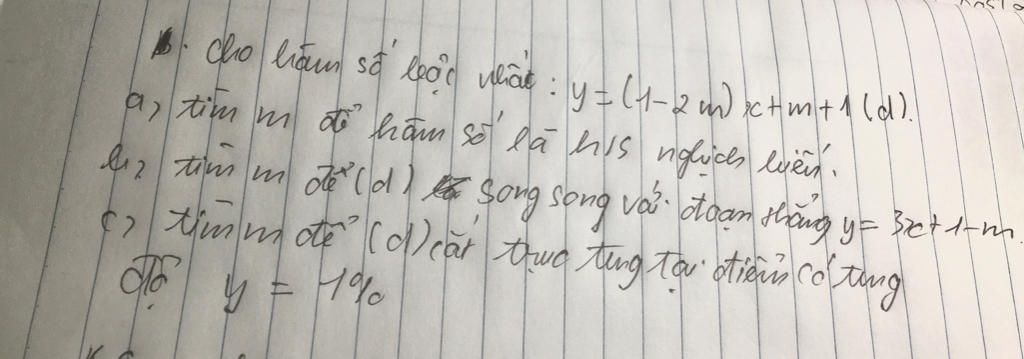 . Cho hàm số bậc nhất : y = (1-2m)x+m+1 (d).
a, tìm m để hàm số là h/s nghịch biến.
b, tìm m để (d) song song với đoạn thẳng y= 3x+1-m.
c) tìm m để (d) cắt trục tung tại điểm có tung
độ y =